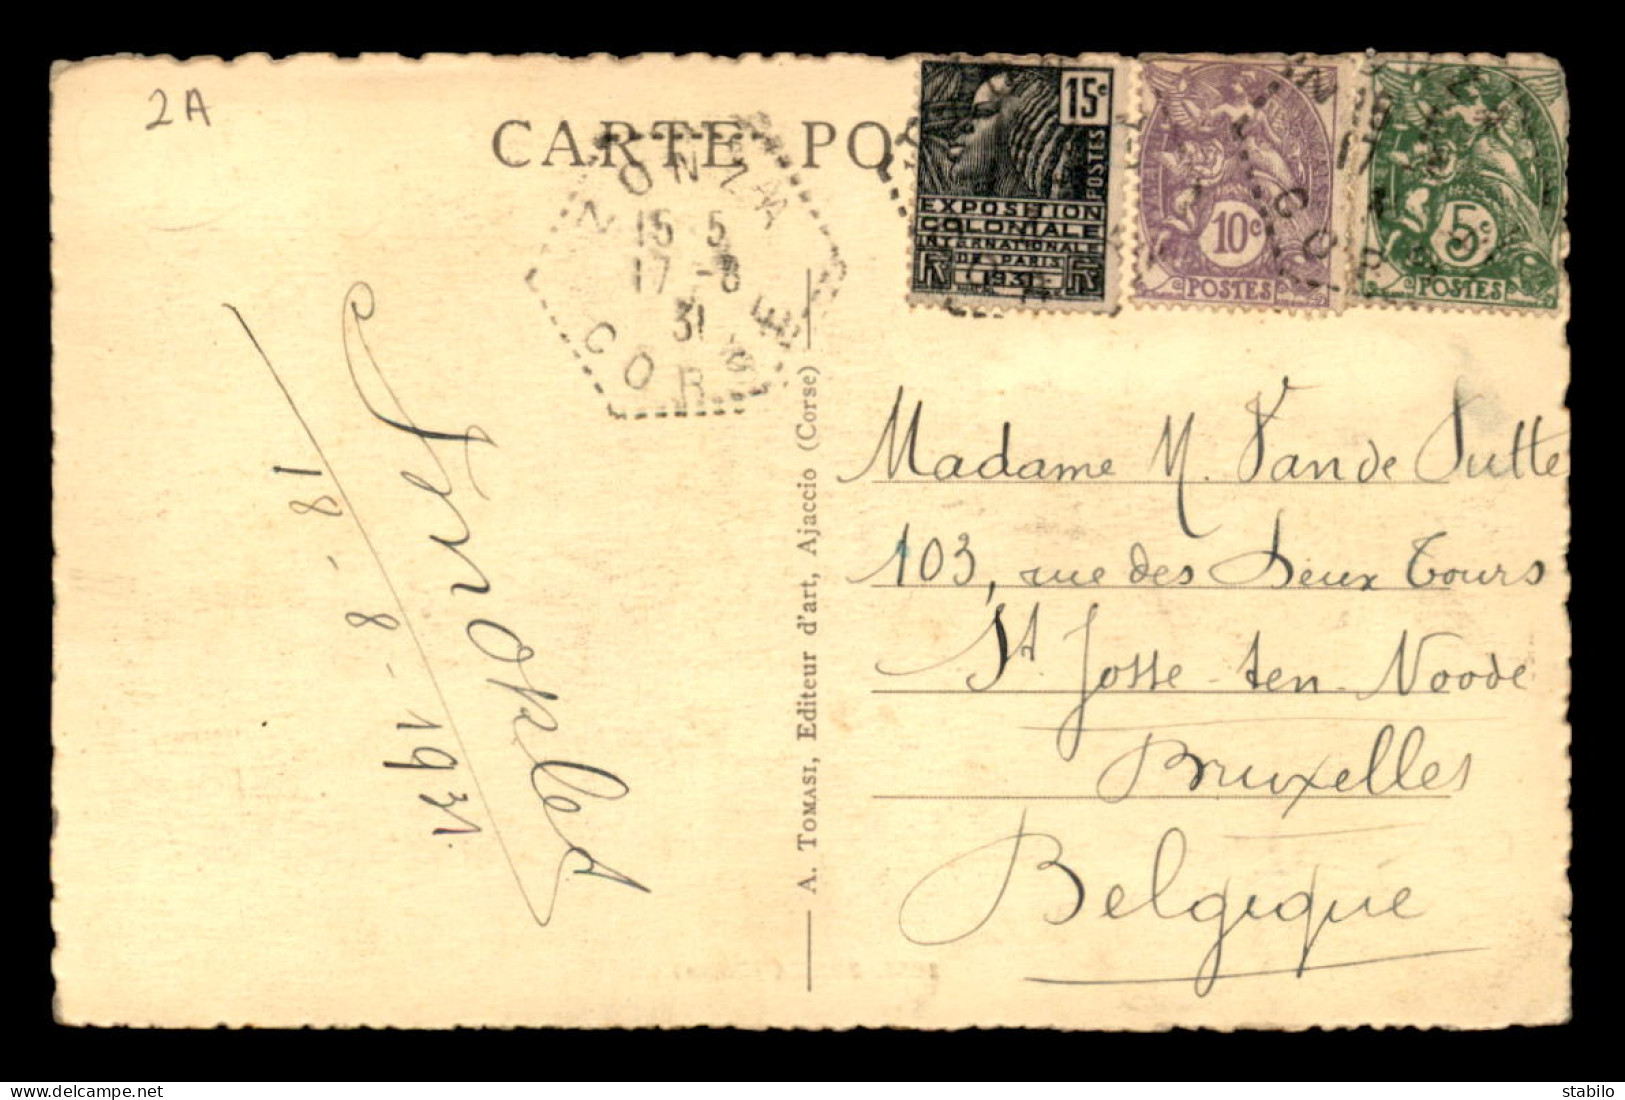 2A
CARTE PO
NONZA
15 5
17-8
31
CORSE
15c
POSTES
EXPOSITION
COLONIALE
INTERNATIONALE
DE PARIS
1931
10c
POSTES
5c
POSTES
18-8-1931
A. TOMASI, Editeur d'art, Ajaccio (Corse)
Madame M. Van de Putte
103, rue des Deux Tours
St Josse-ten-Noode
Bruxelles
Belgique
delcampe.net
stabilo